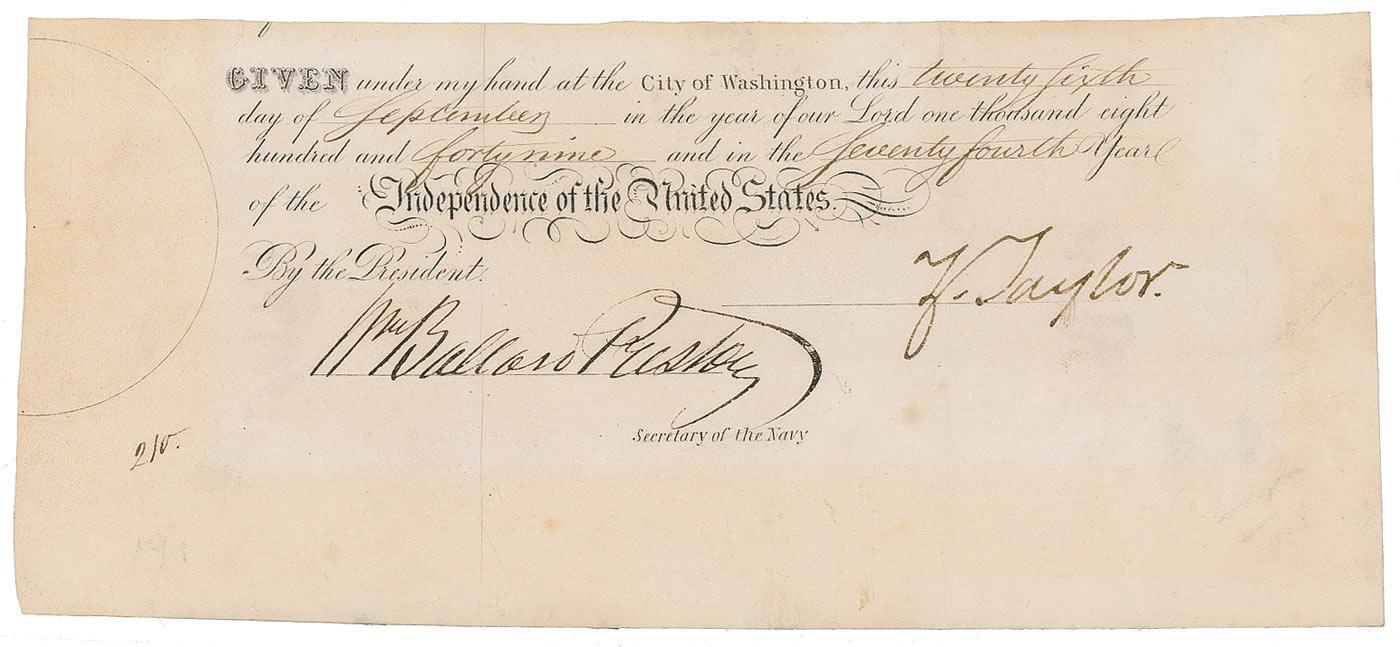 GIVEN under my hand at the City of Washington, this twenty sixth
day of September in the year of our Lord one thousand eight
hundred and forty nine and in the seventy fourth Year
of the Independence of the United States.
By the President.
Z. Taylor.
Wm Ballard Preston
Secretary of the Navy
210.